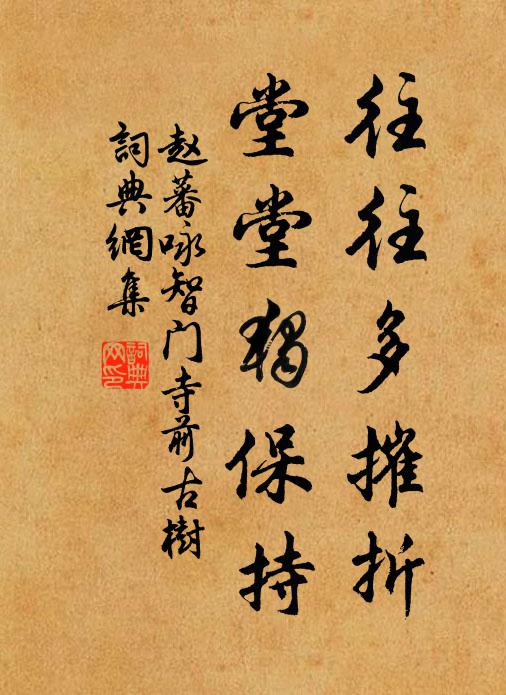 往往多摧折
堂堂独保持
赵蕃咏智门寺前古樹
詞典網集
詞典
网印